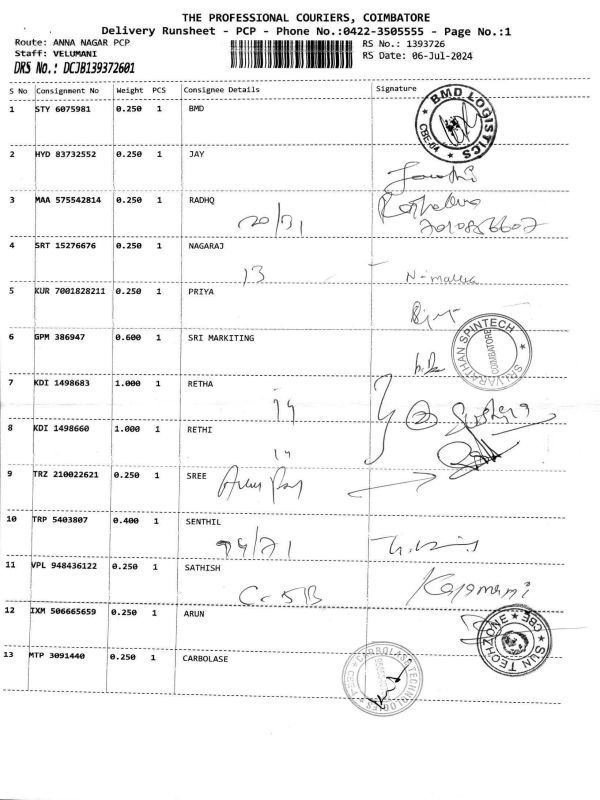 THE PROFESSIONAL COURIERS, COIMBATORE
Delivery Runsheet - PCP - Phone No.:0422-3505555 - Page No.:1
Route: ANNA NAGAR PCP RS No.: 1393726
Staff: VELUMANI RS Date: 06-Jul-2024
DRS No.: DCJB139372601
S No Consignment No Weight PCS Consignee Details Signature
1 STY 6075981 0.250 1 BMD
BMD LOGISTICS CBE-04
2 HYD 83732552 0.250 1 JAY
3 MAA 575542814 0.250 1 RADHQ
20/31
4 SRT 15276676 0.250 1 NAGARAJ
13
5 KUR 7001828211 0.250 1 PRIYA
6 GPM 386947 0.600 1 SRI MARKITING
SRI VARATHAN SPINTECH COIMBATORE
7 KDI 1498683 1.000 1 RETHA
8 KDI 1498660 1.000 1 RETHI
9 TRZ 210022621 0.250 1 SREE
10 TRP 5403807 0.400 1 SENTHIL
11 VPL 948436122 0.250 1 SATHISH
12 IXM 506665659 0.250 1 ARUN
SUN TECHZONE CBE
13 MTP 3091440 0.250 1 CARBOLASE
CARBOLASE TECHNOLOGIES